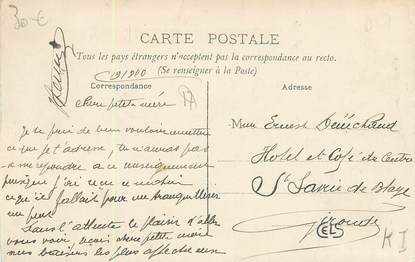 30 €
CARTE POSTALE
Tous les pays étrangers n'acceptent pas la correspondance au recto.
(Se renseigner à la Poste)
Correspondance
Adresse
Chère petite mère
Je te prie de bien vouloir
ce que je t'adresse, tu n'auras pas
à me répondre à ce renseignement
puisque j'ai ce matin
ce qu'il fallait pour me tranquilliser
un peu
Dans l'attente le plaisir d'aller
vous voir, chère petite mère
nos baisers les plus affectueux
Ernest
Hotel et Café du Centre
St Savin de Blaye
Gironde
CELS
K I